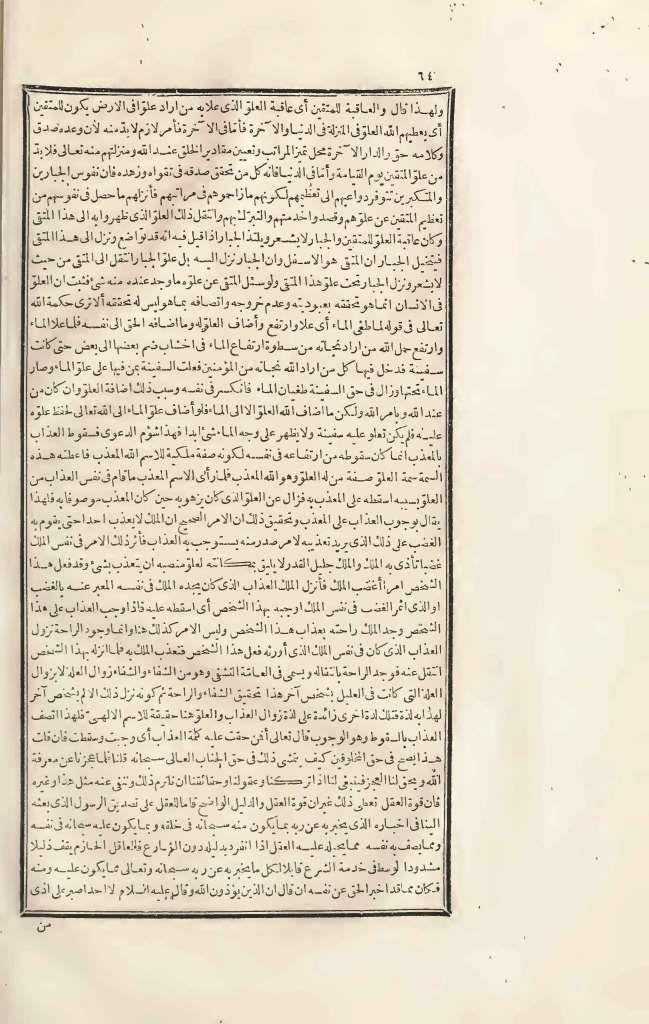 ٦٤
ولهذا قال والعاقبة للمتقين أى عاقبة العلو الذى علا به من أراد علوا فى الارض يكون للمتقين
أى يعطيهم الله العلو فى المنزلة فى الدنيا والآخرة فأما فى الآخرة فأمر لازم لا بد منه لأن وعده صدق
وكلامه حق والدار الآخرة محل تميز المراتب وتعيين مقادير الخلق عند الله ومنزلتهم منه تعالى فلا بد
من علو المتقين يوم القيامة وأما فى الدنيا فانه كل من تحقق صدقه فى تقواه وزهده فان نفوس الجبارين
والمتكبرين تتوفر دواعيهم الى تعظيمهم لكونهم ما زاحموهم فى مراتبهم فأنزلهم ما حصل فى نفوسهم من
تعظيم المتقين عن علوهم وقصدوا خدمتهم والتبرك بهم وانتقل ذلك العلو الذى ظهروا به الى هذا المتقى
وكان عاقبة العلو للمتقين والجبار لا يشعر ويلتذ الجبار اذا قيل فيه انه قد تواضع ونزل الى هذا المتقى
فيتخيل الجبار ان المتقى هو الاسفل وان الجبار نزل اليه بل علو الجبار انتقل الى المتقى من حيث
لا يشعر ونزل الجبار تحت علو هذا المتقى ولو سئل المتقى عن علوه ما وجد عنده منه شئ فثبت ان العلو
فى الانسان انما هو تحققه بعبوديته وعدم خروجه واتصافه بما هو ليس له بحقيقة ألا ترى حكمة الله
تعالى فى قوله لما طغى الماء أى علا وارتفع وأضاف العلو له وما اضافه الحق الى نفسه فلما علا الماء
وارتفع حمل الله من أراد نجاته من سطوة ارتفاع الماء فى اخشاب ضم بعضها الى بعض حتى كانت
سفينة فدخل فيها كل من أراد الله نجاته من المؤمنين فعلت السفينة بمن فيها على علو الماء وصار
الماء تحتها وزال فى حق السفينة طغيان الماء فانكسر فى نفسه وسبب ذلك اضافة العلو وان كان من
عند الله وبأمر الله ولكن ما أضاف الله العلو الا الى الماء فلو أضاف علو الماء الى الله تعالى لحفظ علوه
عليه فلم يكن تعلو عليه سفينة ولا يظهر على وجه الماء شئ ابدا فهذا شؤم الدعوى فسقوط العذاب
بالمعذب انما كان سقوطه من ارتفاعه فى نفسه لكونه صفة ملكية للاسم الله المعذب فاعطته هذه
السمة سمة العلو صفة من له العلو وهو الله المعذب فلما رأى الاسم المعذب ما قام فى نفس العذاب من
العلو بسببه اسقطه على المعذب به فزال عن العلو الذى كان يزهو به حين كان المعذب موصوفا به فلهذا
يقال بوجوب العذاب على المعذب وتحقيق ذلك ان الامر الصحيح ان الملك لا يعذب احدا حتى يقوم به
الغضب على ذلك الذى يريد تعذيبه لامر صدر منه يستوجب به العذاب فأثر ذلك الامر فى نفس الملك
غضبا تأذى به الملك والملك جليل القدر لا يليق بمكانته لعلو منصبه ان يتعذب بشئ وقد فعل هذا
الشخص امرا أغضب الملك فأنزل الملك العذاب الذى كان يجده الملك فى نفسه المعبر عنه بالغضب
او الذى اثمر الغضب فى نفس الملك اوجبه بهذا الشخص أى اسقطه عليه فاذا وجب العذاب على هذا
الشخص وجد الملك راحته بعذاب هذا الشخص وليس الامر كذلك هنا وانما وجود الراحة نزول
العذاب الذى كان فى نفس الملك الذى أورثه فعل هذا الشخص فتعذب الملك به فلما انزله بهذا الشخص
انتقل عنه فوجد الراحة بانتقاله ويسمى فى العامة التشفى وهو من الشفاء والشفاء زوال العلة لا بزوال
العلة التى كانت فى العليل بشخص آخر هذا تحقيق الشفاء والراحة ثم كونه نزل ذلك الالم بشخص آخر
لهذا به لذة فتلك لذة اخرى زائدة على لذة زوال العذاب والعلو هنا حقيقة للاسم الالهى فلهذا اتصف
العذاب بالسقوط وهو الوجوب قال تعالى أفمن حقت عليه كلمة العذاب أى وجبت وسقطت فان قلت
هذا يصح فى حق المخلوقين كيف يتمشى ذلك فى حق الجناب العالى سبحانه قلنا لما عجزنا عن معرفة
الله ويحق لنا العجز فينبغى لنا اذا تركنا وعقولنا وحقائقنا ان نلتزم ذلك وننفى عنه مثل هذا وغيره
فان قوة العقل تعطى ذلك غير ان قوة العقل والدليل الواضح قاما للعقل على تصديق الرسول الذى بعثه
الينا فى اخباره الذى يخبر به عن ربه بما يكون منه سبحانه فى خلقه وبما يكون عليه سبحانه فى نفسه
وما يصف به نفسه مما يحيله عليه العقل اذا انفرد بدليله دون الشارع فالعاقل الحازم يقف ذليلا
مشدود الوسط فى خدمة الشرع قابلا لكل ما يخبر به عن ربه سبحانه وتعالى مما يكون عليه ومنه
فكان مما قد اخبر الحق عن نفسه ان قال ان الذين يؤذون الله وقال عليه السلام لا احد اصبر على اذى
من